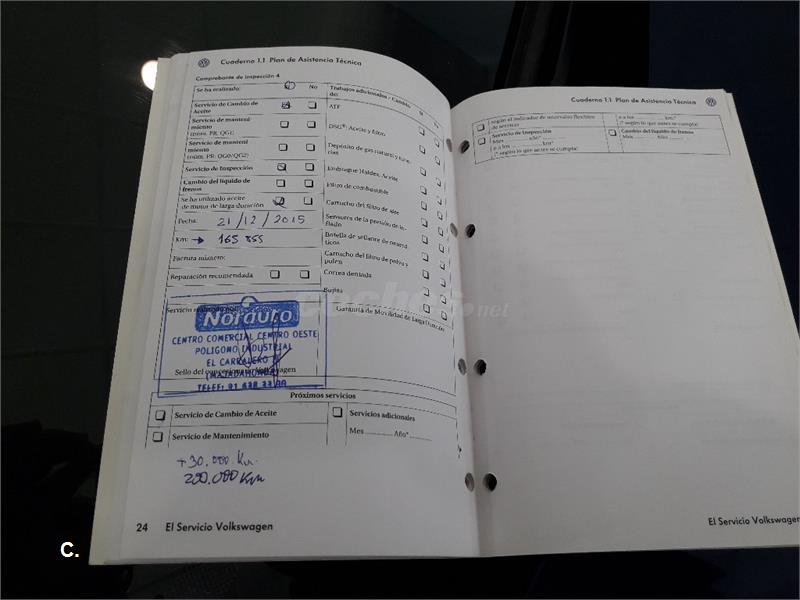 Cuaderno 1.1 Plan de Asistencia Técnica
Comprobante de inspección 4
Se ha realizado:
No
Trabajos adicionales - Cambio
de:
Servicio de Cambio de
Aceite
ATF
Servicio de manteni
miento
(núm. PR: QG1)
DSG®: Aceite y filtro
Servicio de manteni
miento
(núm. PR: QG0/QG2)
Depósito de gas natural y tube-
rías
Servicio de Inspección
Embrague Haldex, Aceite
Cambio del líquido de
frenos
Filtro de combustible
Se ha utilizado aceite
de motor de larga duración
Cartucho del filtro de aire
Fecha: 21/12/2015
Sensores de la presión de in-
flado
Km: → 165 855
Botella de sellante de neumá-
ticos
Factura número:
Cartucho del filtro de polvo y
polen
Reparación recomendada
Correa dentada
Bujías
Garantía de Movilidad de Larga Duración
coches.net
Servicio realizado por:
Norauto
CENTRO COMERCIAL CENTRO OESTE
POLIGONO INDUSTRIAL
EL CARRALERO
(MAJADAHONDA)
Sello del concesionario Volkswagen
Próximos servicios
Servicio de Cambio de Aceite
Servicio de Mantenimiento
Servicios adicionales
Mes ............ Año* ............
+30.000 Km
200.000 Km
24 El Servicio Volkswagen
Cuaderno 1.1 Plan de Asistencia Técnica
según el indicador de intervalos flexibles
de servicio
Servicio de Inspección
Mes ............ Año* ............
o a los ............ km*
(* según lo que antes se cumpla)
o a los ............ km*
(* según lo que antes se cumpla)
Cambio del líquido de frenos
Mes ............ Año ............
El Servicio Volkswagen
C.